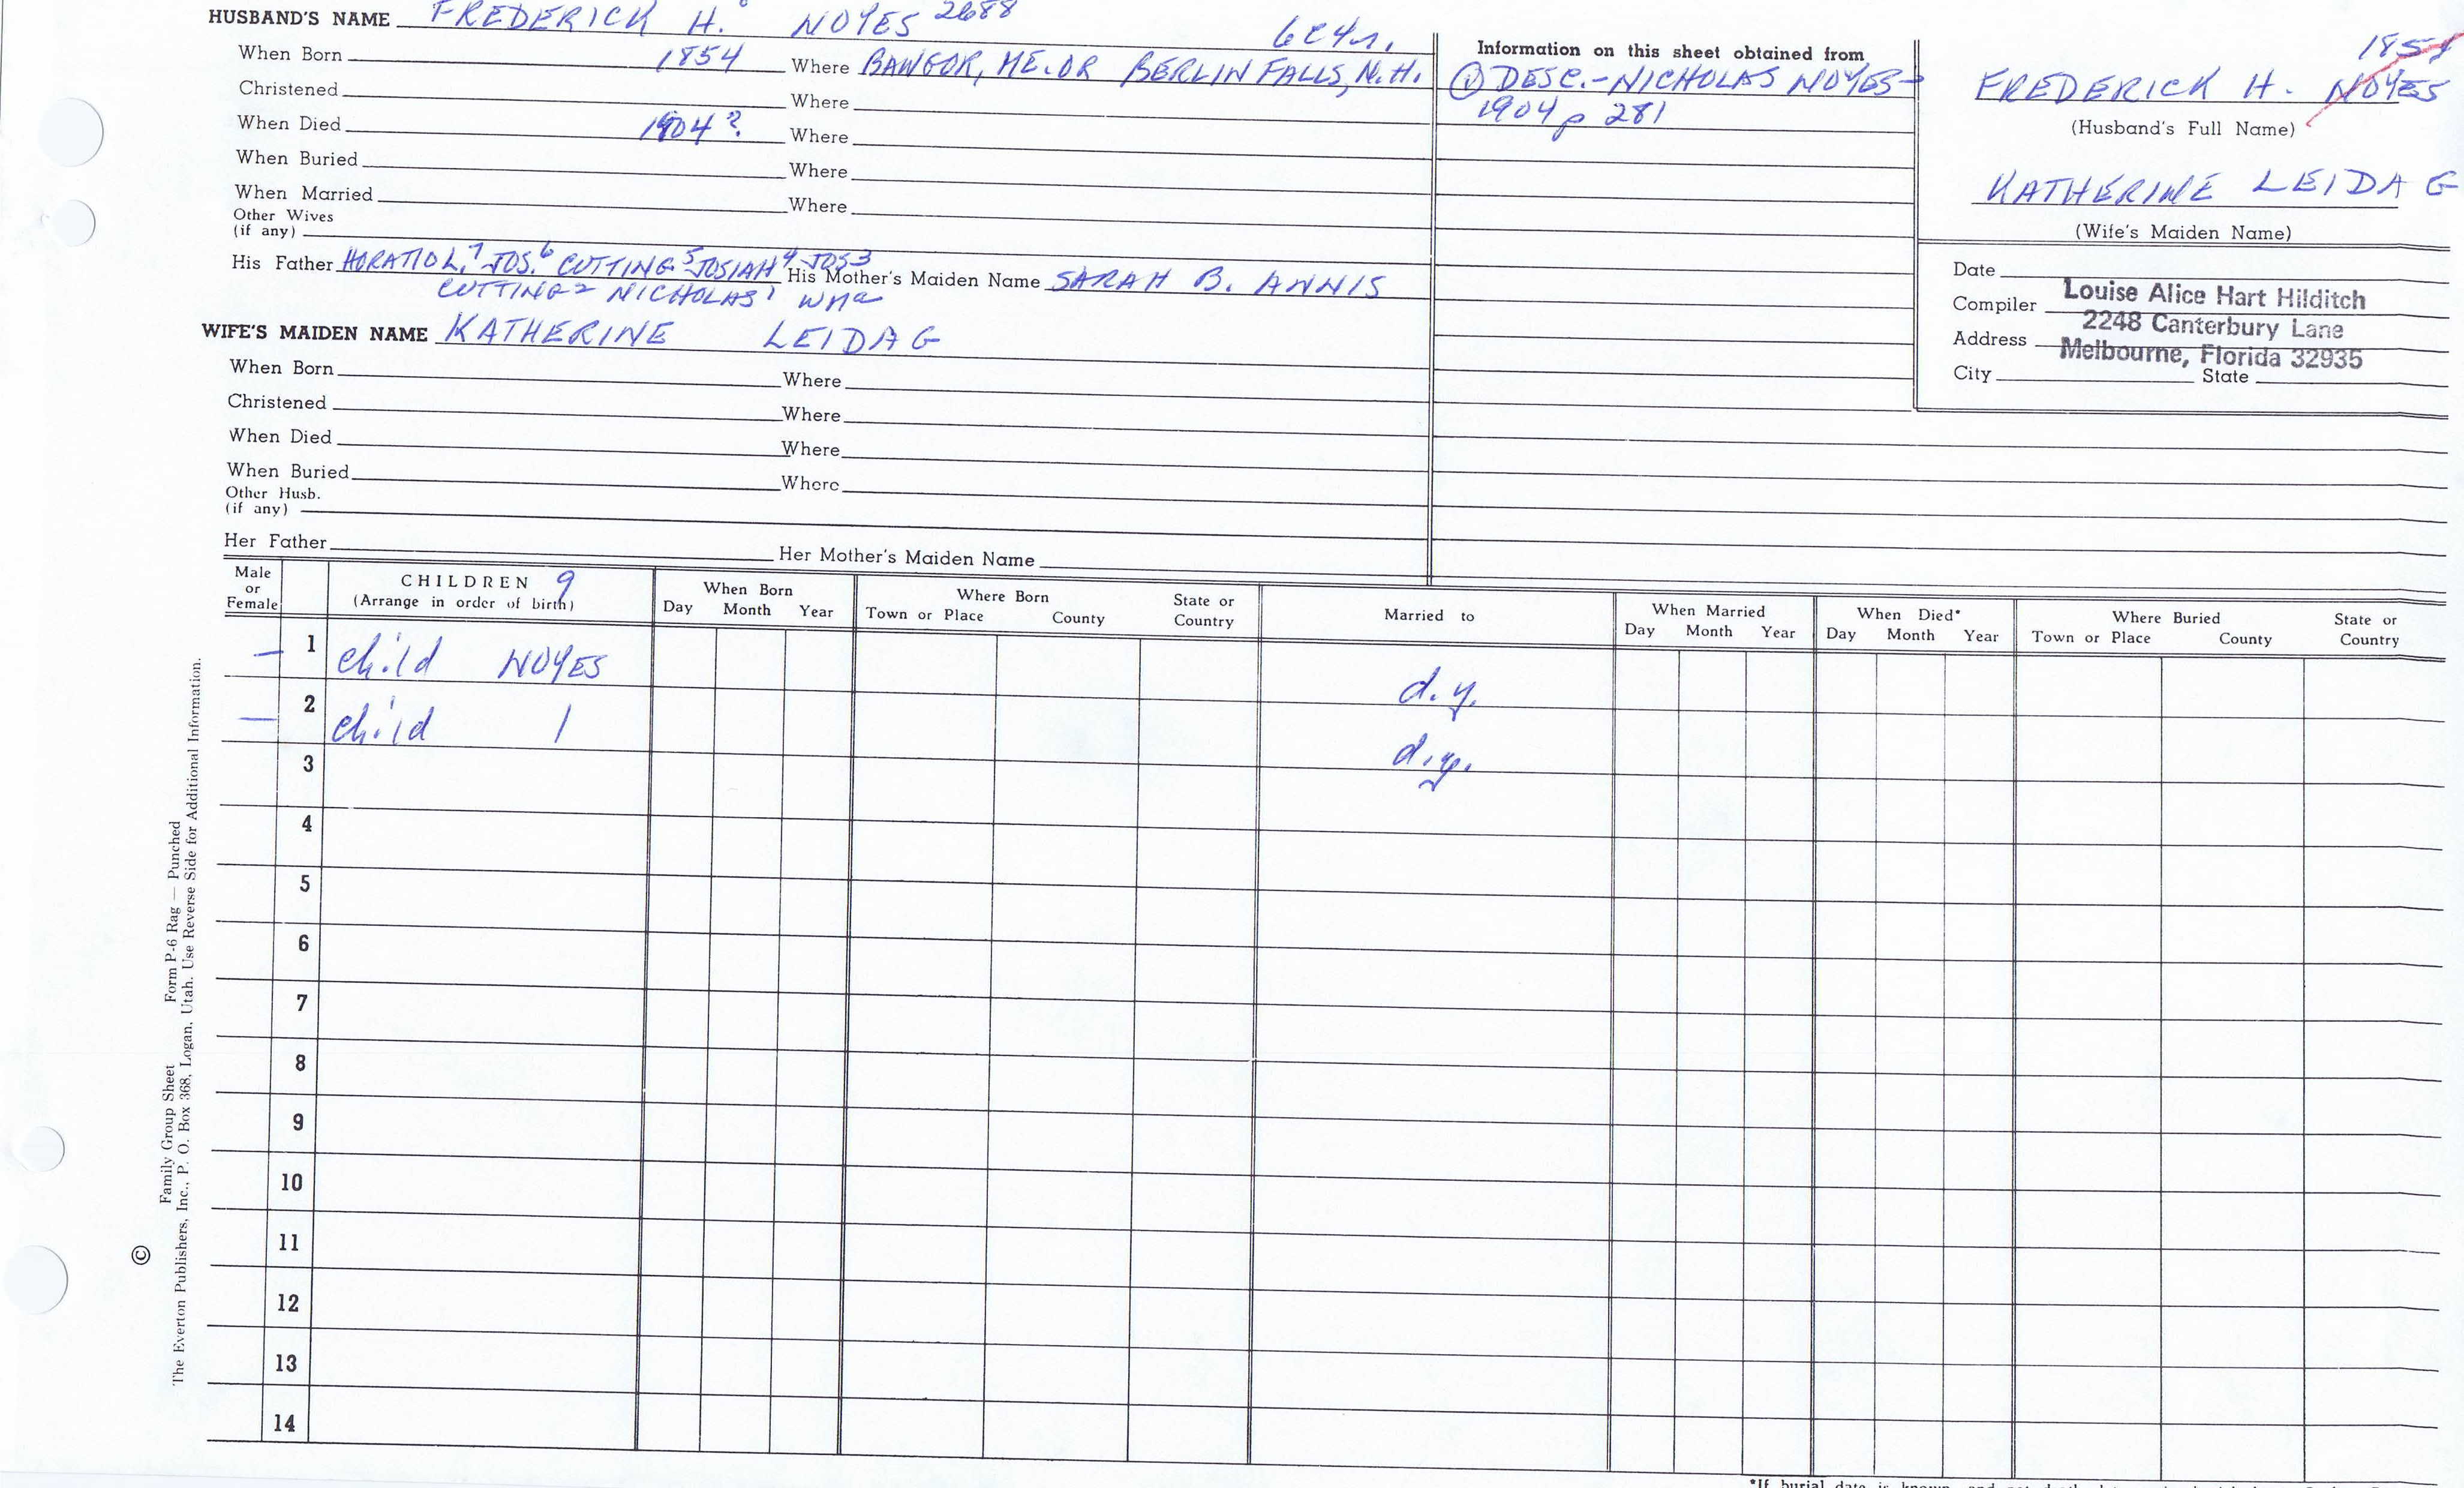 HUSBAND'S NAME FREDERICK H. NOYES 2688
When Born 1854 Where BANGOR, ME. OR BERLIN FALLS, N.H.
Christened Where
When Died 1904? Where
When Buried Where
When Married Where
Other Wives
(if any)
His Father HORATIO L.7 JOS.6 CUTTING5 JOSIAH4 JOS3 His Mother's Maiden Name SARAH B. ANNIS
CUTTING2 NICHOLAS1 Wma
WIFE'S MAIDEN NAME KATHERINE LEIDAG
When Born Where
Christened Where
When Died Where
When Buried Where
Other Husb.
(if any)
Her Father Her Mother's Maiden Name
Information on this sheet obtained from
① DESC.-NICHOLAS NOYES-
1904 p 281
1854
FREDERICK H. NOYES
(Husband's Full Name)
KATHERINE LEIDAG
(Wife's Maiden Name)
Date
Compiler Louise Alice Hart Hilditch
2248 Canterbury Lane
Address Melbourne, Florida 32935
City State
Male or Female CHILDREN 9 (Arrange in order of birth) When Born Day Month Year Where Born Town or Place County State or Country Married to When Married Day Month Year When Died* Day Month Year Where Buried Town or Place County State or Country
— 1 child NOYES d.y.
— 2 child | d.y.
3
4
5
6
7
8
9
10
11
12
13
14
© Family Group Sheet Form P-6 Rag — Punched
The Everton Publishers, Inc., P. O. Box 368, Logan, Utah. Use Reverse Side for Additional Information.